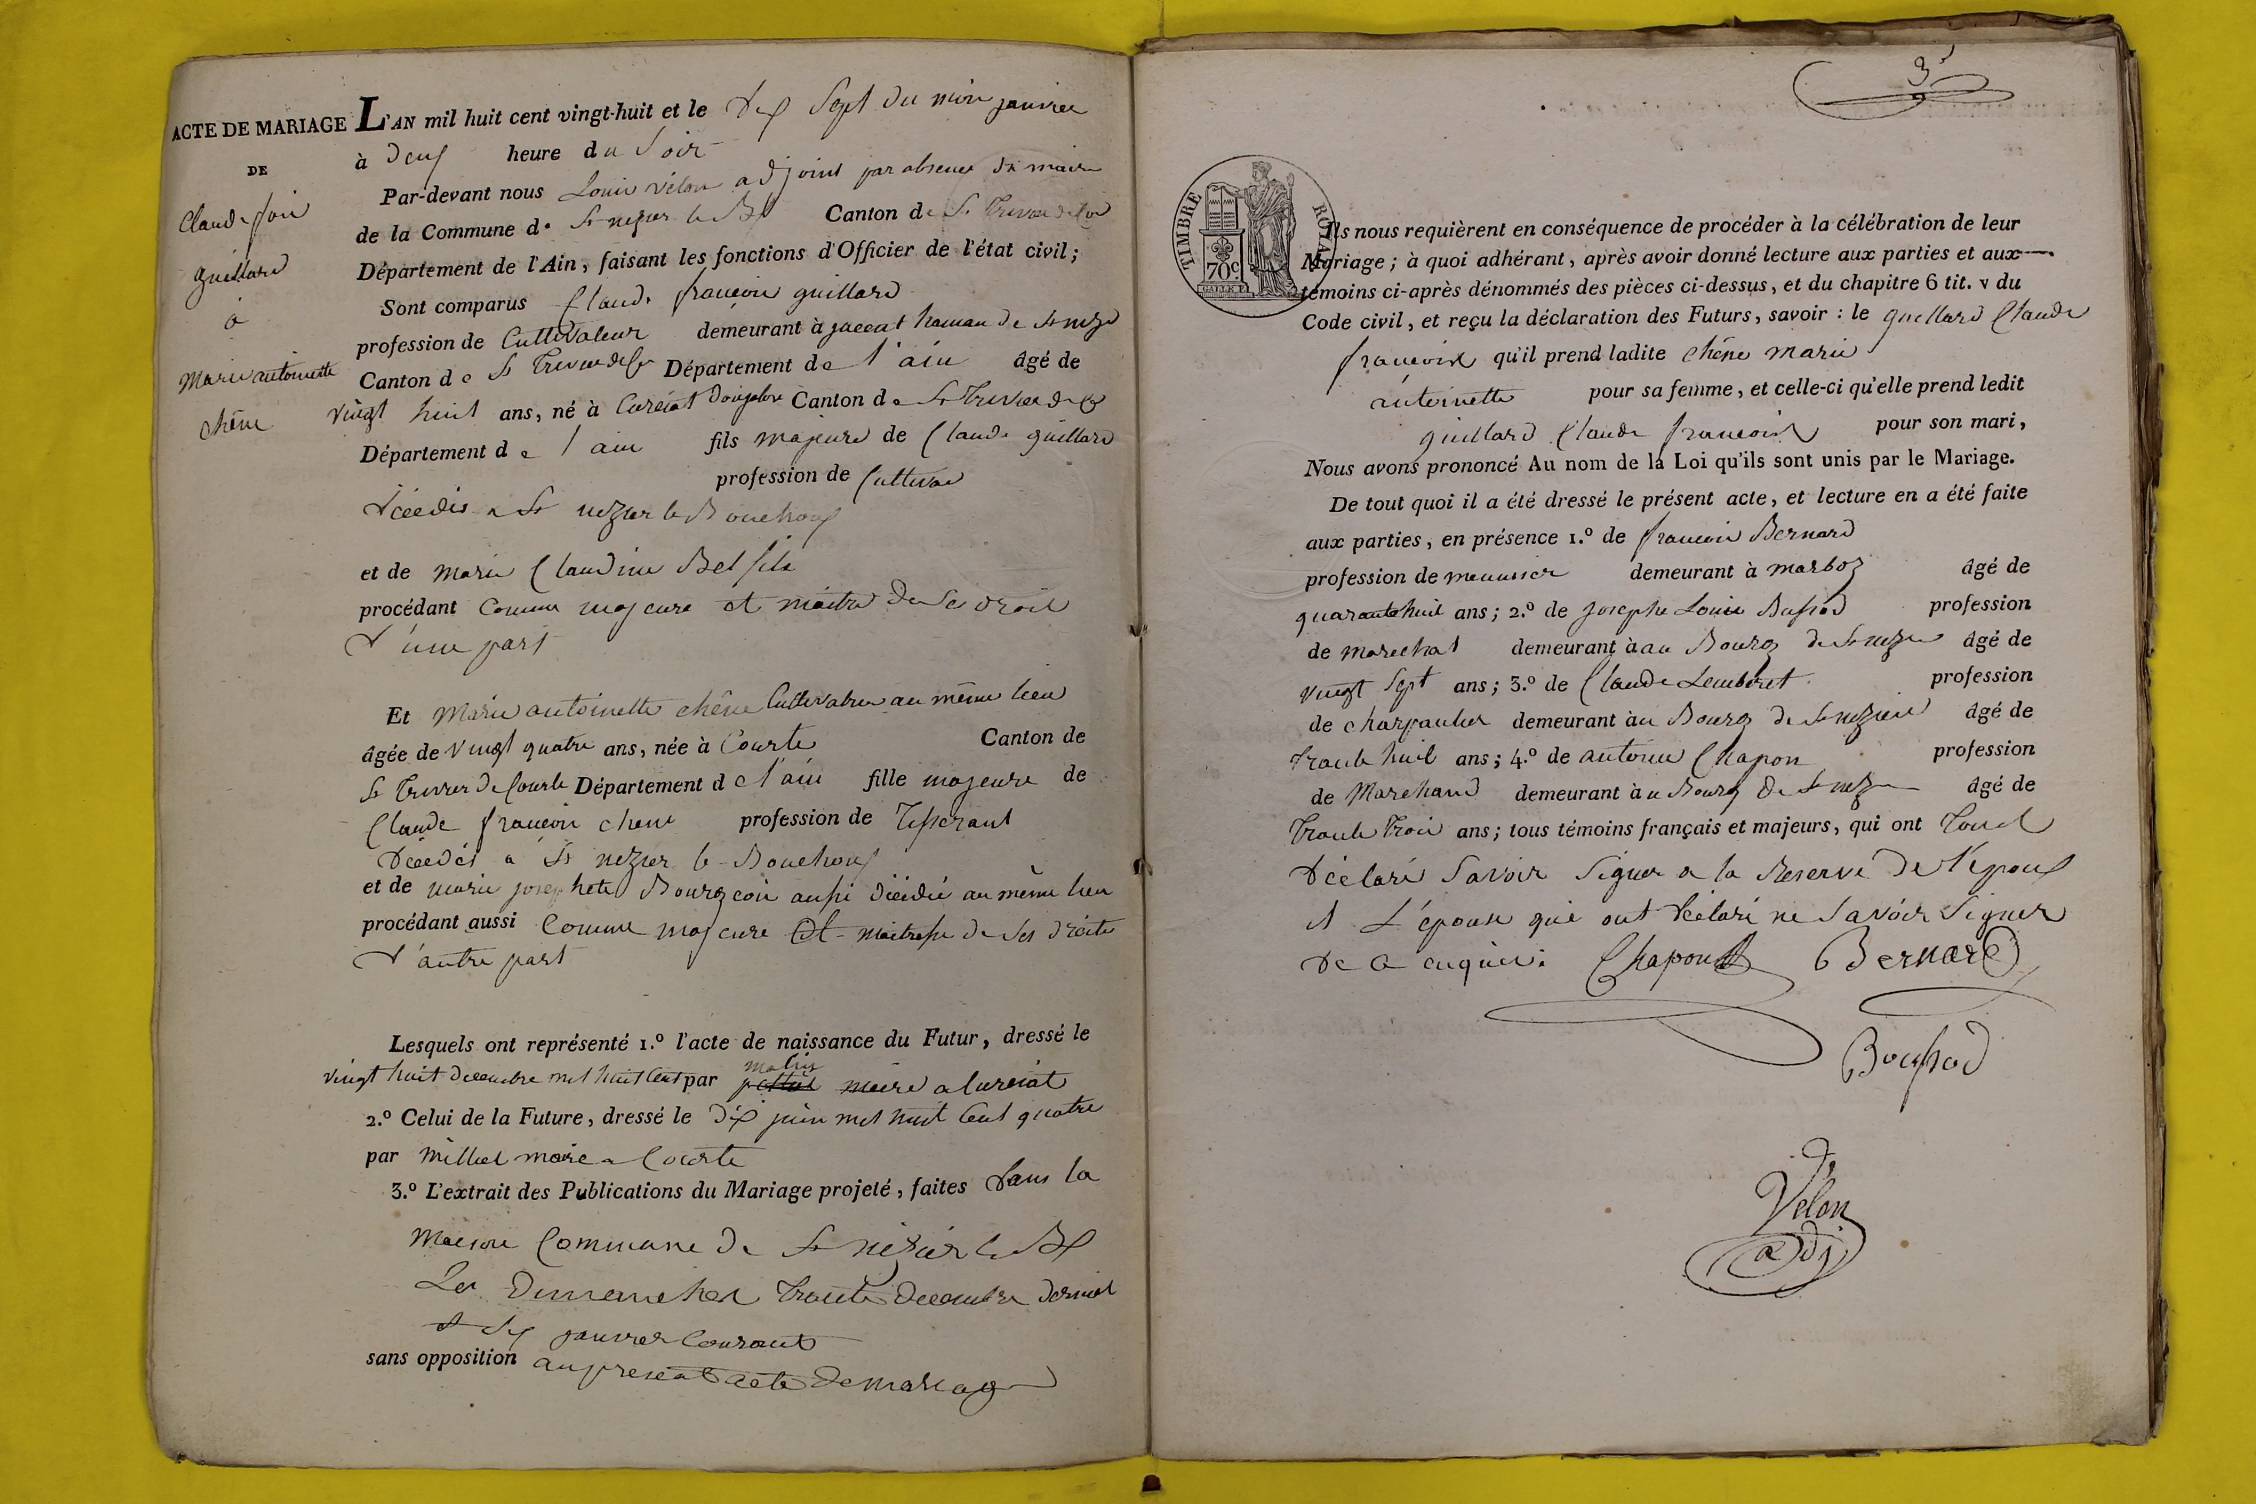 ACTE DE MARIAGE
DE
Claude fois
guillard
à
Marie antoinette
chêne
L'AN mil huit cent vingt-huit et le dix Sept du mois janvier
à deux heure du Soir
Par-devant nous Louis vélon adjoint par absence du maire
de la Commune de St nizier le Bx Canton de St Trivier de Cou
Département de l'Ain, faisant les fonctions d'Officier de l'état civil;
Sont comparus Claude françois guillard
profession de Cultivateur demeurant à hamau de St nizr
Canton de St Trivier de Cor Département de l'ain âgé de
vingt huit ans, né à Curciat Dongalon Canton de St Trivier de
Département de l'ain fils majeure de Claude guillard
profession de Cultivat
décédés a St nizier le Bouchoux
et de marie Claudine Bel fils
procédant Comme majeure et maitre de Ses droit
d'une part
Et Marie antoinette chêne Cultivatrice au même lieu
âgée de vingt quatre ans, née à Courte Canton de
St Trivier de Courte Département de l'ain fille majeure de
Claude françois chene profession de Tisserant
décédés a St nizier le Bouchoux
et de marie josephete Bourgcoin aussi décédée au même lieu
procédant aussi Comme majeure et maitresse de Ses droits
d'autre part
Lesquels ont représenté 1.º l'acte de naissance du Futur, dressé le
vingt huit decembre mil huit Cent par maire a Curciat
2.º Celui de la Future, dressé le dix juin mil huit Cent quatre
par maire a Courte
3.º L'extrait des Publications du Mariage projeté, faites dans la
Maison Commune de St nizier le Bx
Les Dimanches trante decembre dernier
et Six janvier Courant
sans opposition au present acte de mariage
3
TIMBRE ROYAL
70c
Ils nous requièrent en conséquence de procéder à la célébration de leur
Mariage; à quoi adhérant, après avoir donné lecture aux parties et aux
témoins ci-après dénommés des pièces ci-dessus, et du chapitre 6 tit. v du
Code civil, et reçu la déclaration des Futurs, savoir: le guillard Claude
françois qu'il prend ladite chêne marie
antoinette pour sa femme, et celle-ci qu'elle prend ledit
guillard Claude françois pour son mari,
Nous avons prononcé Au nom de la Loi qu'ils sont unis par le Mariage.
De tout quoi il a été dressé le présent acte, et lecture en a été faite
aux parties, en présence 1.º de françois Bernard
profession de menusier demeurant à marboz âgé de
quarante huit ans; 2.º de josephe Louis profession
de marechal demeurant à au Bourg de St nizier âgé de
vingt Sept ans; 3.º de Claude Lemberet profession
de charpantier demeurant à u Bourg de St nizier âgé de
trante huit ans; 4.º de antoine Chapon profession
de Marchand demeurant à u Bourg de St nizr âgé de
trante trois ans; tous témoins français et majeurs, qui ont tous
déclaré Savoir Signer a la Reserve de l'epoux
et L'épouse qui ont déclaré ne Savoir Signer
de a enquéri. Chapon Bernard
Velon
adj